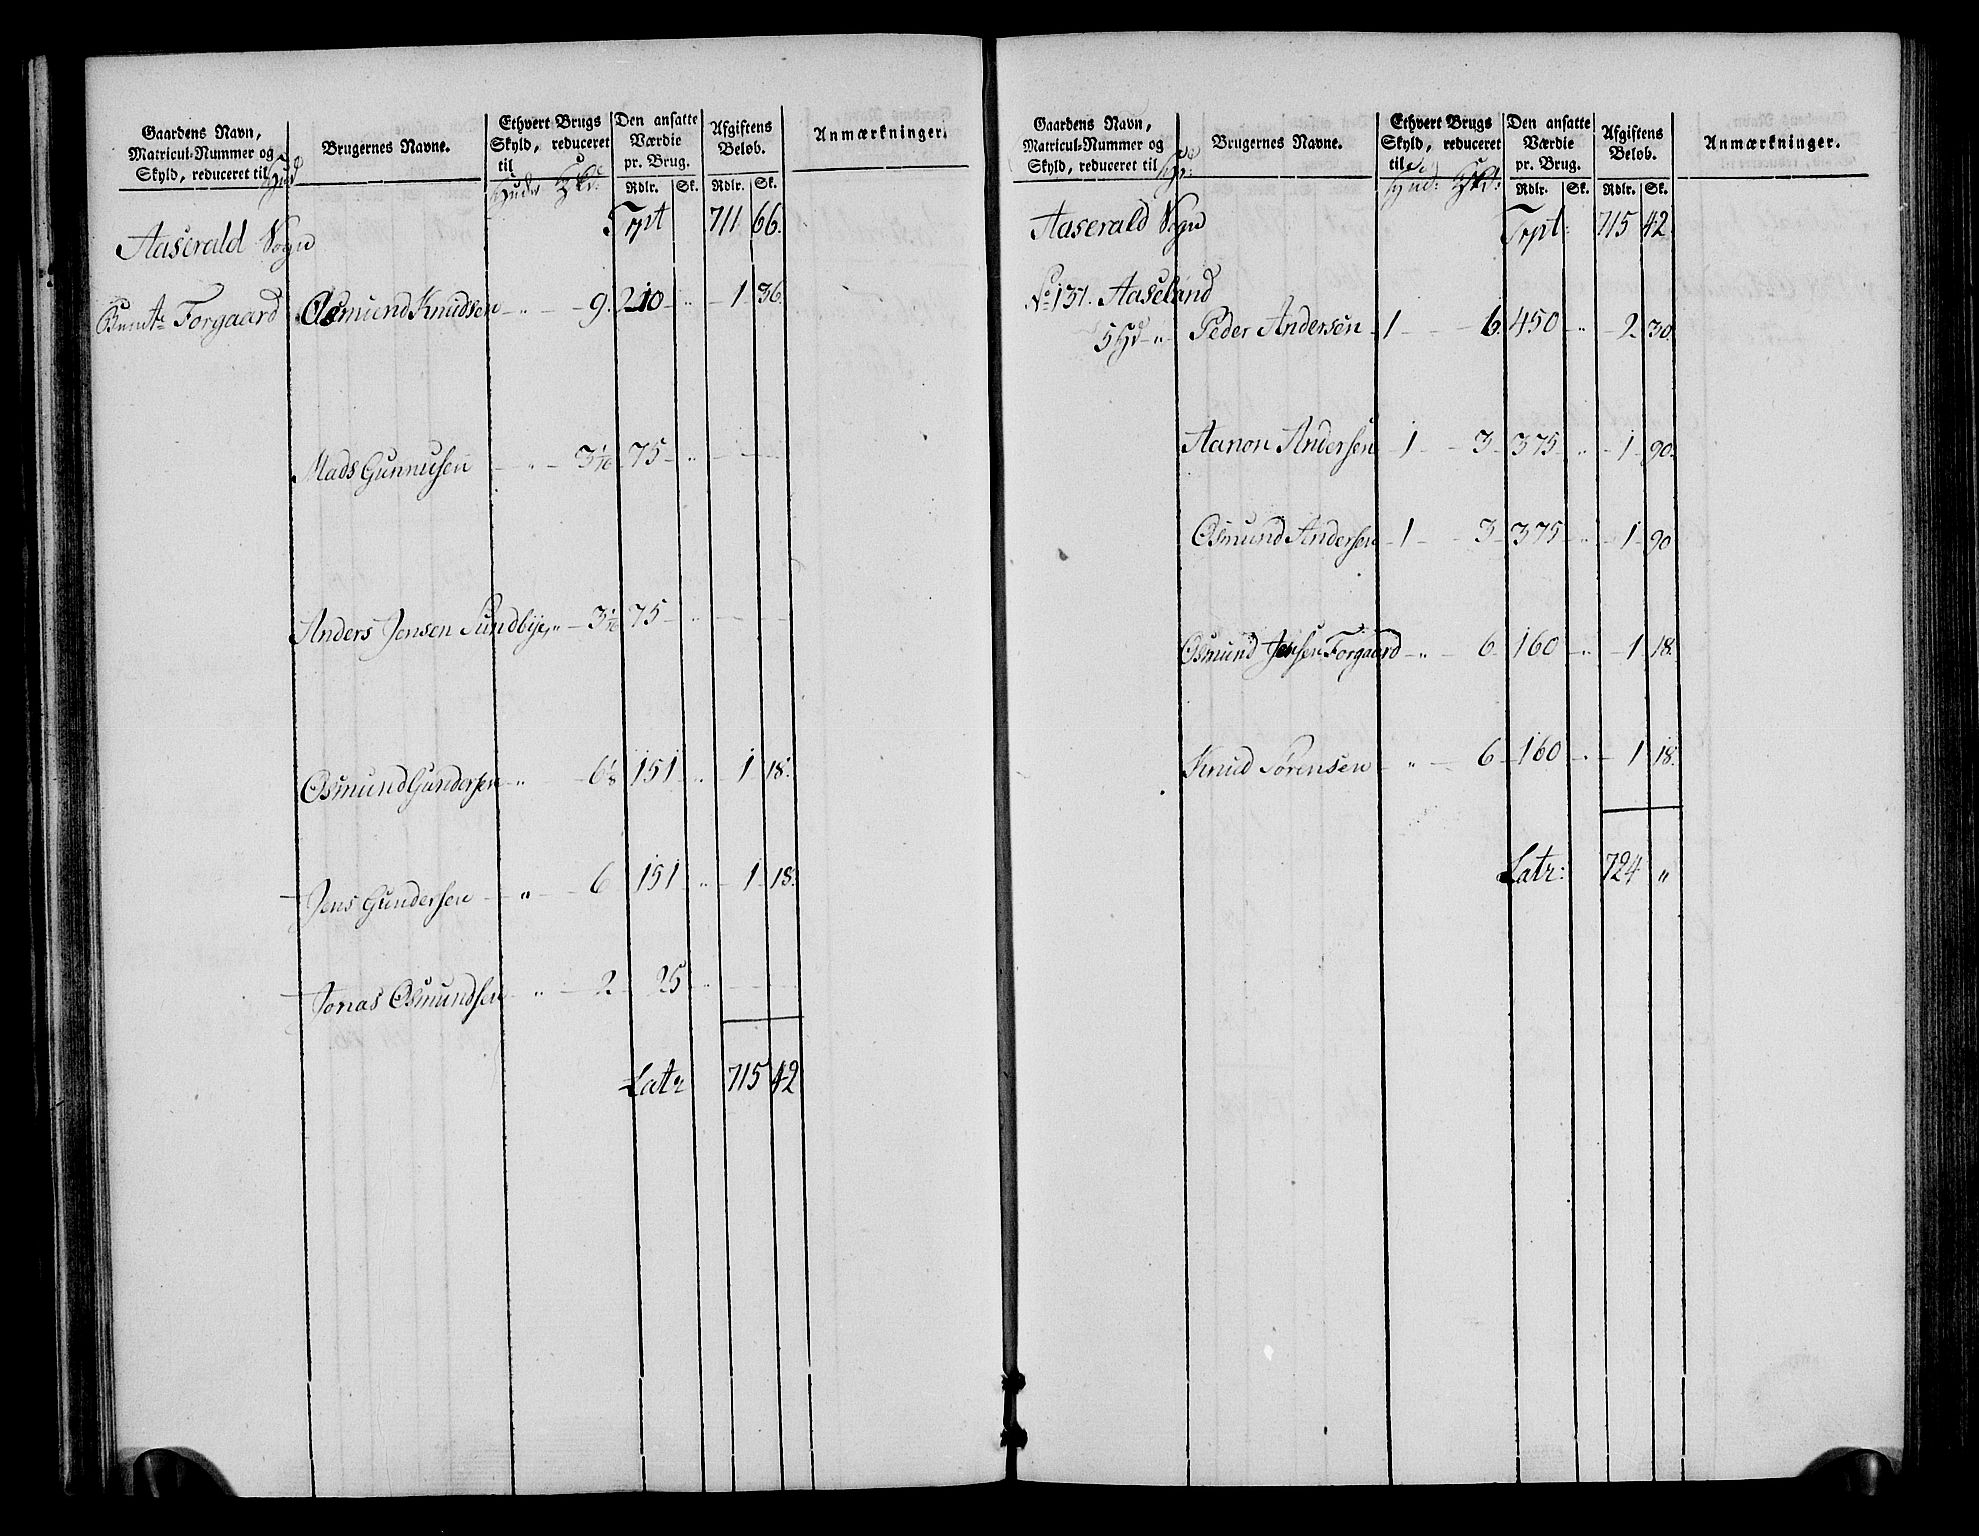 Gaardens Navn, Matricul-Nummer og Skyld, reduceret til Hud
Brugernes Navne.
Ethvert Brugs Skyld, reduceret til Huder
Den ansatte Værdie pr. Brug. Rdlr. Sk.
Afgiftens Beløb. Rdlr. Sk.
Anmærkninger.
Aaserald Sogn Trpt 711 66.
Forgaard Osmund Knudsen - " - 9. 210 " 1 36.
Mads Gunnusen - " - 3 1/16 75 - " - -
Anders Jensen Sundbye " - 3 1/16 75 - " - -
Osmund Gundersen - " - 6 1/8 151 - " 1 18.
Jens Gundersen - " - 6 151 - " 1 18.
Jonas Osmundsen - " - 2 25 - " - -
Latr 715 42
Gaardens Navn, Matricul-Nummer og Skyld, reduceret til
Brugernes Navne.
Ethvert Brugs Skyld, reduceret til Hud:
Den ansatte Værdie pr. Brug. Rdlr. Sk.
Afgiftens Beløb. Rdlr. Sk.
Anmærkninger.
Aaserald Sogn Trpt: 715 42.
No 137. Aaseland
5 Hd - " Peder Andersen 1 - 6. 450 " 2 30.
Aanon Andersen 1 - 3 375 " 1 90.
Osmund Andersen 1 - 3 375 " 1 90
Osmund Jensen Forgaard - " - 6 160 " 1 18.
Knud Sørensen - " - 6 160 " 1 18.
Latr: 724 "